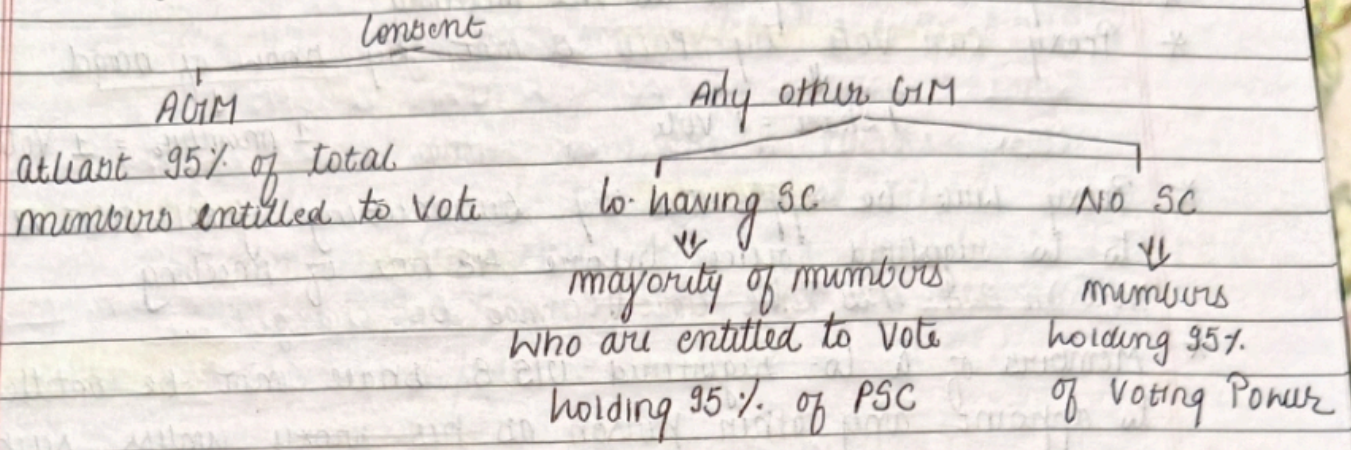 Consent
AGM
Any other GM
atleast 95% of total
members entitled to vote
Co. having SC
NO SC
majority of members
who are entitled to vote
holding 95% of PSC
members
holding 95%
of Voting Power